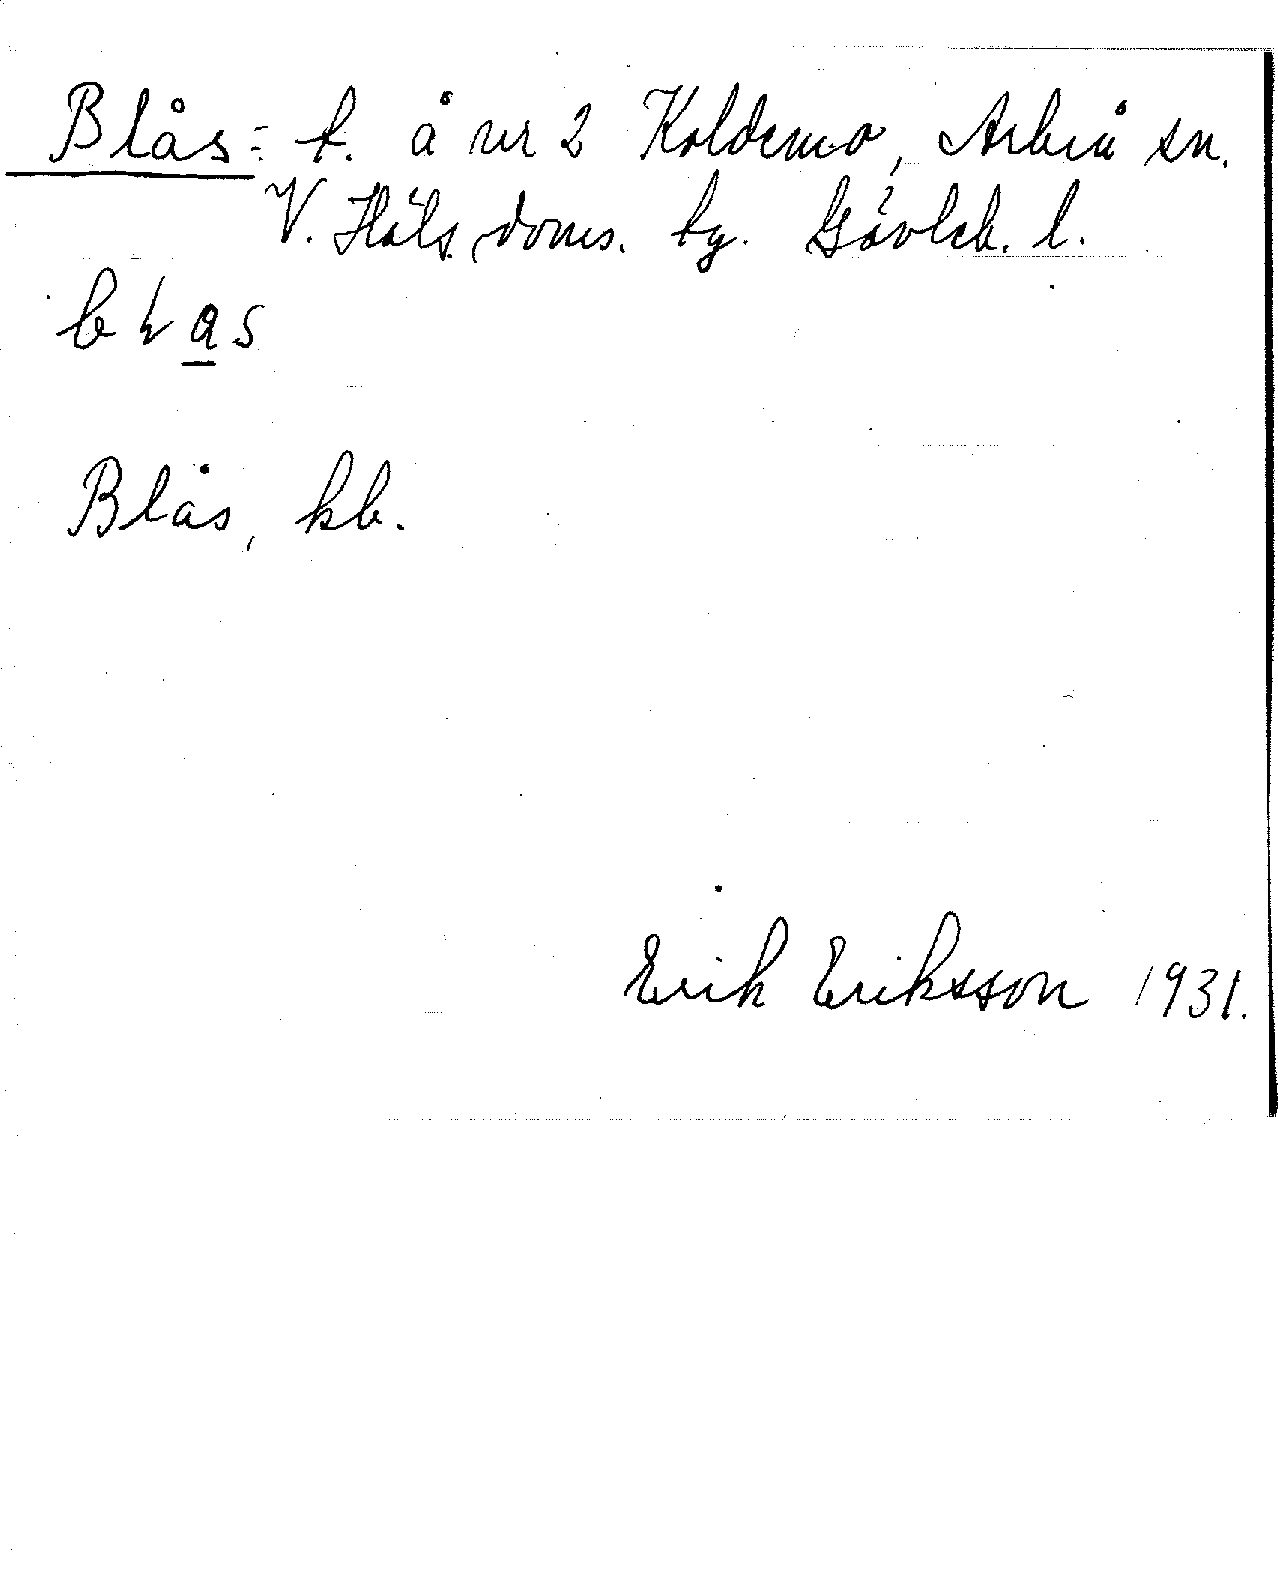 Blås: t. å nr 2 Koldemo, Arbrå sn.
V. Häls. doms. tg. Gävleb. l.
Blås, kb.
Erik Eriksson 1931.